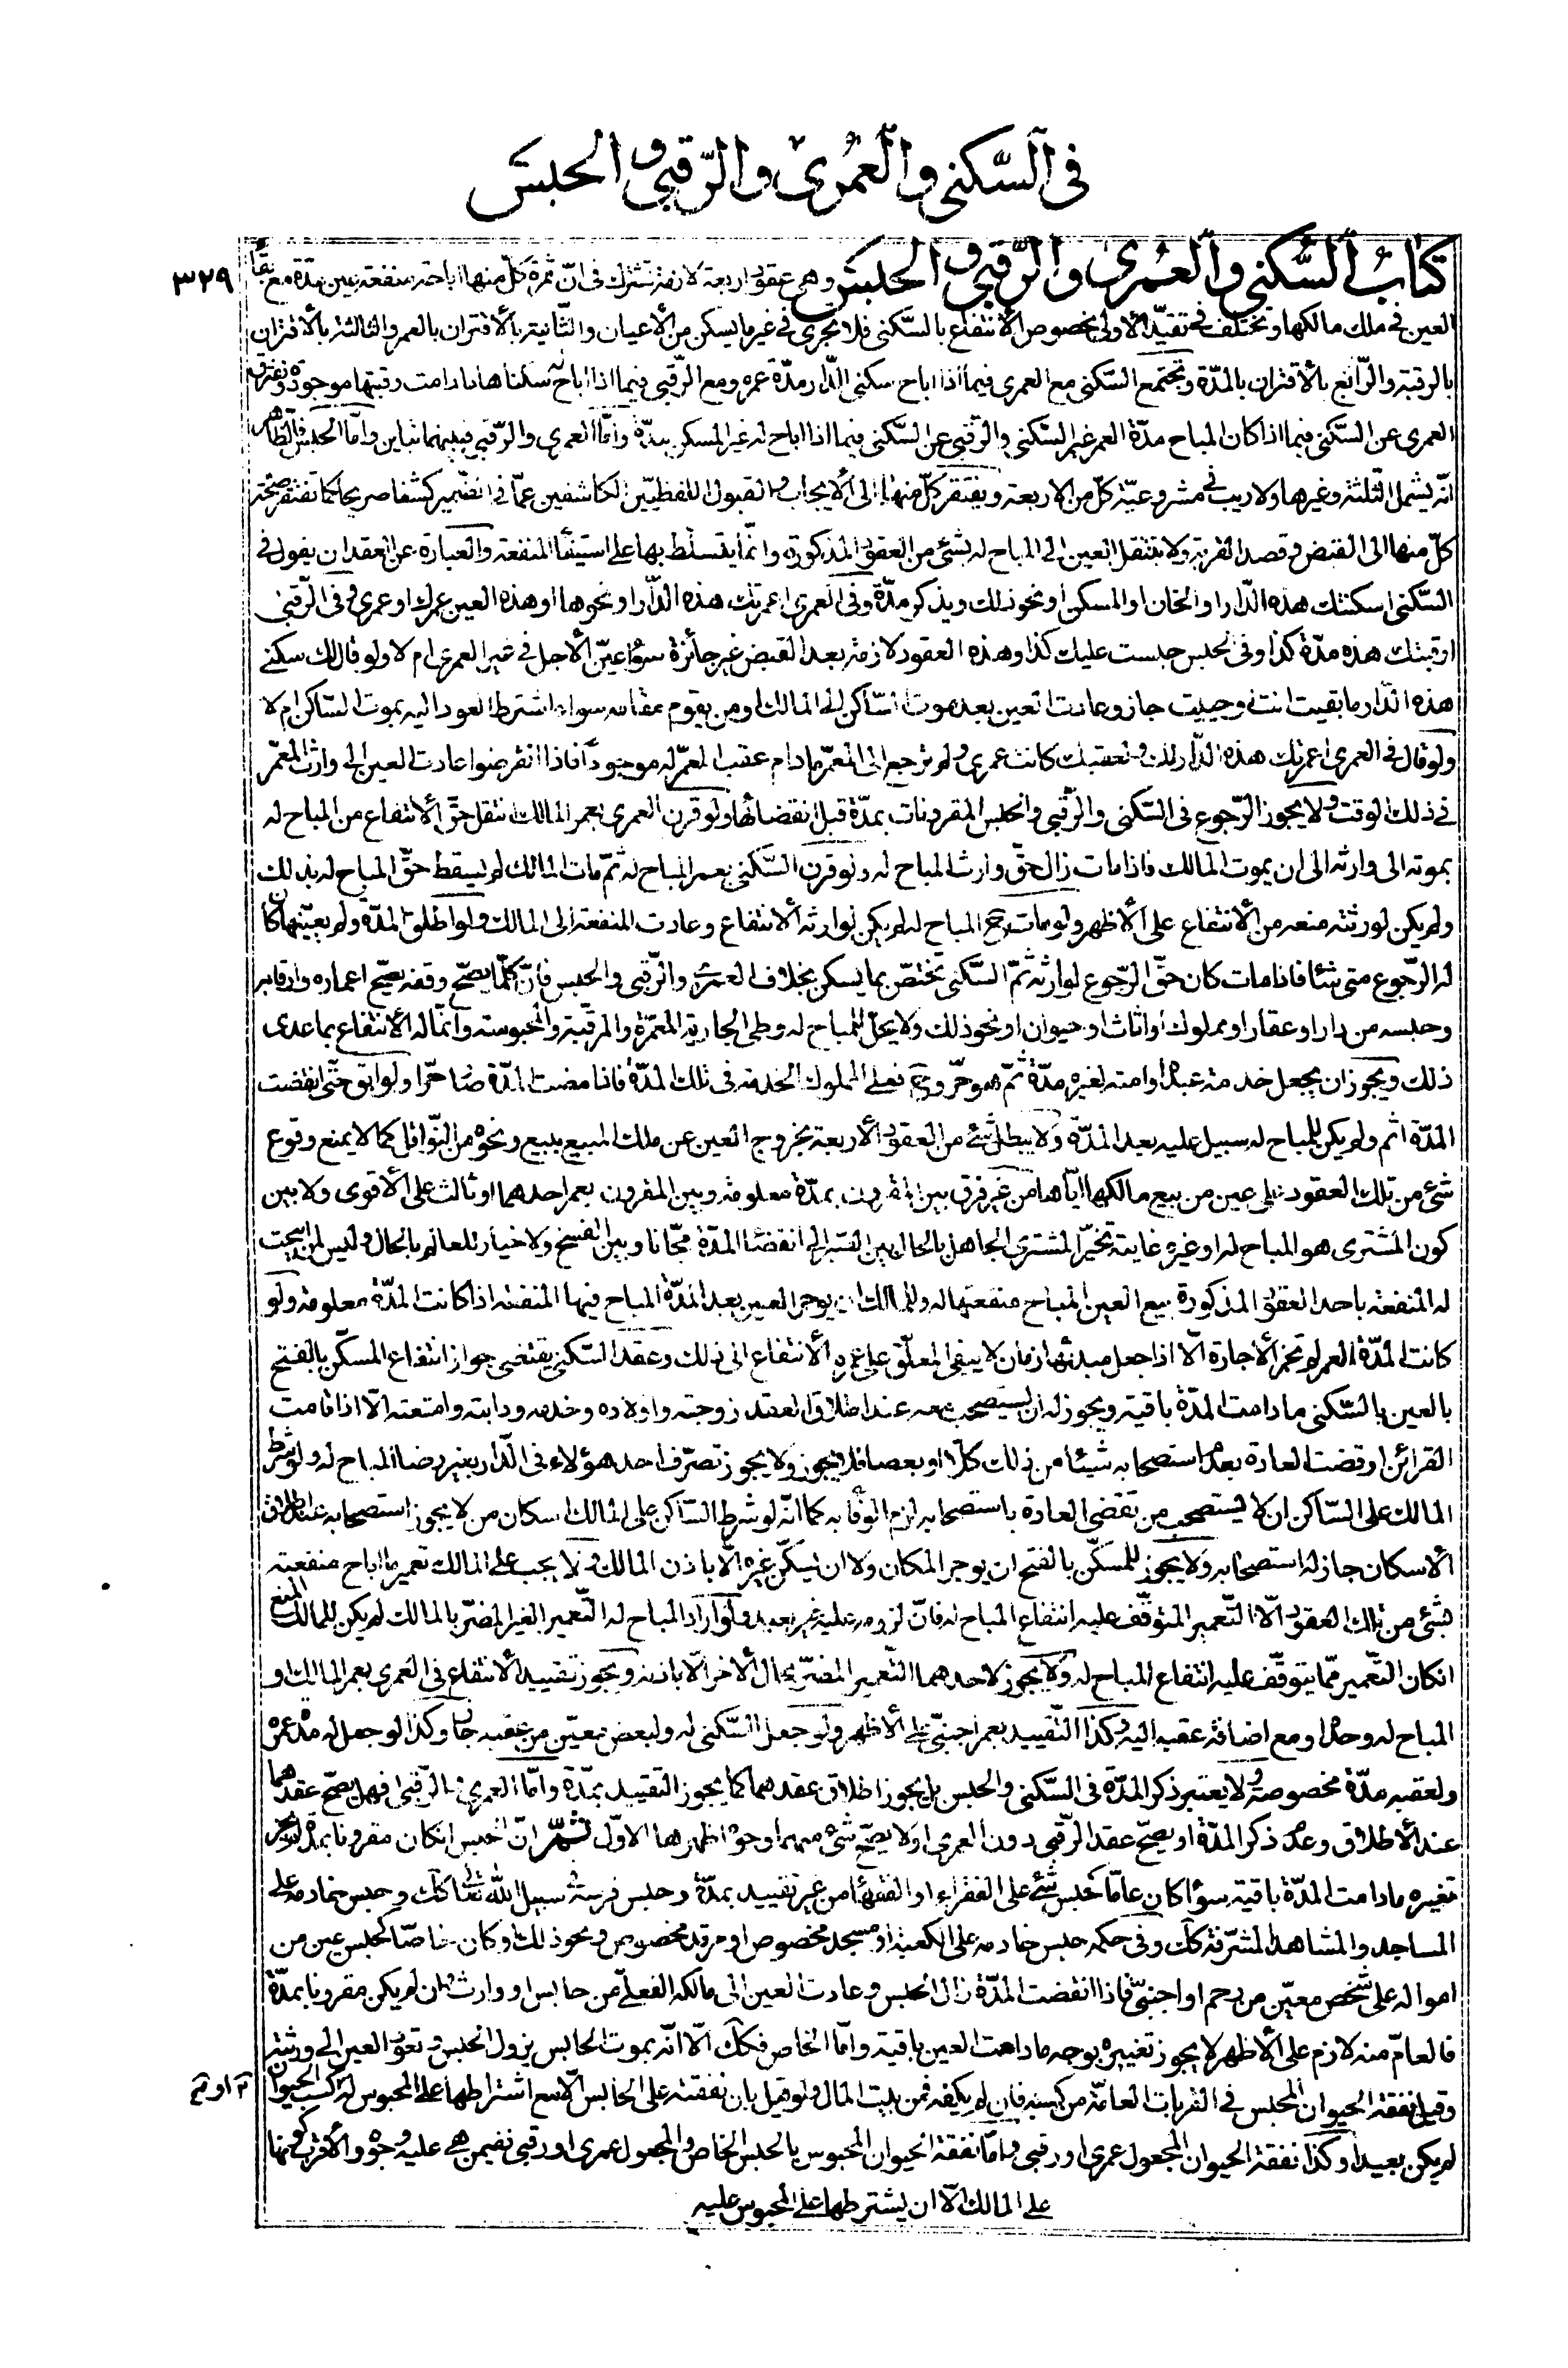 في السكنى والعمرى والرقبى والحبس
٣٢٩
كتاب السكنى والعمرى والرقبى والحبس وهي عقود اربعة لازمة تشترك في انّ ثمرة كلّ منها اباحة منفعة عين مدّة مع بقاء
العين في ملك مالكها وتختلف في تقيّد الأولى بخصوص الأنتفاع بالسّكنى فلا يجرى في غير ما يسكن من الأعيان والثّانية بالأقتران بالعمر والثالثة بالأقتران
بالرقبة والرّابع بالأقتران بالمدّة وتجتمع السّكنى مع العمرى فيما اذا اباح سكنى الدّار مدّة عمره ومع الرّقبى فيما اذا اباح له سكناها ما دامت رقبتها موجودة وتفترق
العمرى عن السّكنى فيما اذا كان المباح مدّة العمر غير السّكنى والرقبى عن السّكنى فيما اذا اباح له غير المسكن بمدّة وامّا العمرى والرّقبى فبينهما تباين وامّا الحبس فالظاهر
انّه يشمل الثّلثة وغيرها ولا ريب في مشروعيّة كلّ من الاربعة ويفتقر كلّ منها الى الأيجاب والقبول اللفظيّين الكاشفين عمّا في الضّمير كشفا صريحا كما تفتقر صحّة
كلّ منها الى القبض وقصد القربة ولا ينتقل العين الى المباح له بشئ من العقود المذكورة وانّما يتسلّط بها على استيفاء المنفعة والعبارة عن العقد ان يقول في
السّكنى اسكنتك هذه الدّار او الخان او المسكن او نحو ذلك ويذكر مدّة وفي العمرى اعمرتك هذه الدّار او نحوها او هذه العين عمرك او عمرى وفي الرّقبى
ارقبتك هذه مدّة كذا وفي الحبس حبست عليك كذا وهذه العقود لازمة بعد القبض غير جائزة سواء عيّن الأجل في غير العمرى ام لا ولو قال لك سكنى
هذه الدّار ما بقيت انت وحييت جاز وعادت العين بعد موت السّاكن الى المالك او من يقوم مقامه سواء اشترط العود اليه بموت السّاكن ام لا
ولو قال في العمرى اعمرتك هذه الدّار لك ولعقبك كانت عمرى ولم ترجع الى المعمّر ما دام عقب المعمّر له موجودا فاذا انقرضوا عادت العين الى وارث المعمّر
في ذلك الوقت ولا يجوز الرّجوع في السّكنى والرّقبى والحبس المقرونات بمدّة قبل انقضائها ولو قرن العمرى بعمر المالك انتقل حقّ الأنتفاع من المباح له
بموته الى وارثه الى ان يموت المالك فاذا مات زال حقّ وارث المباح له ولو قرن السّكنى بعمر المباح له ثمّ مات المالك لم يسقط حقّ المباح له بذلك
ولم يكن لورثته منعه من الأنتفاع على الأظهر ولو مات ح المباح له لم يكن لوارثه الأنتفاع وعادت المنفعة الى المالك ولو اطلق المدّة ولم يعيّنها كان
له الرّجوع متى شاء فاذا مات كان حقّ الرّجوع لوارثه ثمّ السّكنى تختصّ بما يسكن بخلاف العمرى والرّقبى والحبس فانّ كلّما يصحّ وقفه يصحّ اعماره وارقابه
وحبسه من دار او عقار او مملوك او اثاث او حيوان او نحو ذلك ولا يحلّ للمباح له وطى الجارية المعمّرة والمرقبة والمحبوسة وانّما له الأنتفاع بما عدى
ذلك ويجوز ان يجعل خدمة عبده او امته لغيره مدّة ثمّ هو حرّ و ح فعلى المملوك الخدمة في تلك المدّة فاذا مضت المدّة صار حرّا ولو ابق حتّى انقضت
المدّة اثم ولم يكن للمباح له سبيل عليه بعد المدّة ولا يبطل شئ من العقود الأربعة بخروج العين عن ملك المبيح ببيع ونحوه من النّواقل كما لا يمنع وقوع
شئ من تلك العقود على عين من بيع مالكها ايّاها من غير فرق بين المقرون بمدّة معلومة وبين المقرون بعمر احدهما او ثالث على الأقوى ولا بين
كون المشترى هو المباح له او غيره غايته تخيّر المشترى الجاهل بالحال بين الصّبر الى انقضاء المدّة مجّانا وبين الفسخ ولا خيار للعالم بالحال وليس لمن ابيحت
له المنفعة باحد العقود المذكورة بيع العين المباح منفعتها له وللمالك ان يوجر العين بعد المدّة المباح فيها المنفعة اذا كانت المدّة معلومة ولو
كانت المدّة العمر لم تجز الأجارة الّا اذا جعل مبدئها زمان لا يبقى المعلّق على عمره الأنتفاع الى ذلك وعقد السّكنى يقتضى جواز انتفاع المسكّن بالفتح
بالعين بالسّكنى ما دامت المدّة باقية ويجوز له ان يستصحب معه عند اطلاق العقد زوجته واولاده وخدمه ودابته وامتعته الّا اذا قامت
القرائن او قضت العادة بعدم استصحابه شيئا من ذلك كلّا او بعضا فلا يجوز ولا يجوز تصرّف احد هؤلاء في الدّار بغير رضا المباح له ولو شرط
المالك على السّاكن ان لا يستصحب من تقضى العادة باستصحابه لزم الوفاء به كما انّه لو شرط السّاكن على المالك اسكان من لا يجوز استصحابه عند اطلاق
الأسكان جاز له استصحابه ولا يجوز للمسكّن بالفتح ان يوجر المكان ولا ان يسكّن غيره الّا باذن المالك ولا يجب على المالك تعمير ما اباح منفعته
بشئ من تلك العقود الّا التّعمير المتوقّف عليه انتفاع المباح له فانّ لزومه عليه غير بعيد ولو اراد المباح له التّعمير الغير المضرّ بالمالك لم يكن للمالك المنع
انكان التّعمير ممّا يتوقّف عليه انتفاع المباح له ولا يجوز لاحدهما التّعمير المضرّ بحال الأخر الّا باذنه ويجوز تقييد الأنتفاع في العمرى بعمر المالك او
المباح له وحده او مع اضافة عقبه اليه وكذا التّقييد بعمر اجنبىّ على الأظهر ولو جعل السّكنى له ولبعض معيّن من عقبه جاز وكذا لو جعل له مدّة عمره
ولعقبه مدّة مخصوصة ولا يعتبر ذكر المدّة في السّكنى والحبس بل يجوز اطلاق عقدهما كما يجوز التقييد بمدّة وامّا العمرى والرّقبى فهل يصحّ عقدهما
عند الأطلاق وعدم ذكر المدّة او يصحّ عقد الرّقبى دون العمرى او لا يصحّ شئ منهما وجوه اظهرها الاوّل ثمّ انّ الحبس انكان مقرونا بمدّة لم يجز
تغييره ما دامت المدّة باقية سواء كان عامّا كحبس شئ على الفقراء او الفقهاء من غير تقييد بمدّة وحبس فرسه في سبيل الله تعالى كك وحبس خادمه على
المساجد والمشاهد المشرّفة كك وفي حكمه حبس خادمه على الكعبة او مسجد مخصوص او مرقد مخصوص ونحو ذلك او كان خاصّا كحبس عين من
امواله على شخص معيّن من رحم او اجنبىّ فاذا انقضت المدّة زال الحبس وعادت العين الى مالكه الفعلىّ من حابس او وارث وان لم يكن مقرونا بمدّة
فالعامّ منه لازم على الأظهر لا يجوز تغييره بوجه ما دامت العين باقية وامّا الخاص فكك الّا انّه بموت الحابس يزول الحبس وتعود العين الى ورثته
وقيل نفقة الحيوان المحبس في القربات العامّة من كسبه فان لم يكفه فمن بيت المال ولو قيل بان نفقته على الحابس الّا مع اشتراطها على المحبوس له كسب الحيوان
لم يكن بعيدا وكذا نفقة الحيوان المجعول عمرى او رقبى وامّا نفقة الحيوان المحبوس بالحبس الخاص والمجعول عمرى او رقبى نفيمن هي عليه وجوه والأقرب كونها
على المالك الّا ان يشترطها على المحبوس عليه